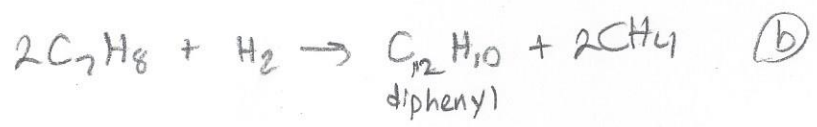 2C₇H₈ + H₂ → C₁₂H₁₀ + 2CH₄ ⓑ
diphenyl